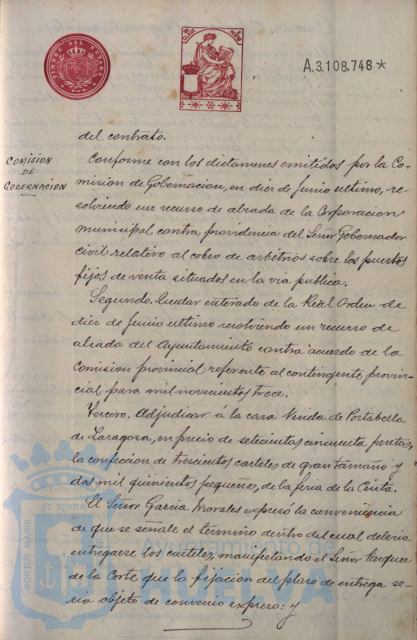 TIMBRE DEL ESTADO
A.3.108.748*
del contrato.
COMISION
DE
GOBERNACION
Conforme con los dictamenes emitidos por la Co-
mision de Gobernacion, en diez de Junio ultimo, re-
solviendo un recurso de alzada de la Corporacion
municipal contra providencia del Señor Gobernador
civil relativo al cobro de arbitrios sobre los puestos
fijos de venta situados en la via publica.
Segundo. Quedar enterado de la Real Orden de
diez de Junio ultimo resolviendo un recurso de
alzada del Ayuntamiento contra acuerdo de la
Comision provincial referente al contingente, provin-
cial para mil novecientos trece.
Tercero. Adjudicar á la casa Viuda de Portabella
de Zaragoza, en precio de setecientos cincuenta pesetas,
la confeccion de trescientos carteles de gran tamano y
dos mil quinientos pequeños, de la feria de la Cinta.
El Señor Garcia Morales expresó la conveniencia
de que se señale el termino dentro del cual deberia
entregarse los carteles, manifestando el Señor Vazquez
de la Corte que la fijacion del plazo de entrega se-
ria objeto de convenio expreso: y
PORTUS MARIS ET TERRAE
HUELVA